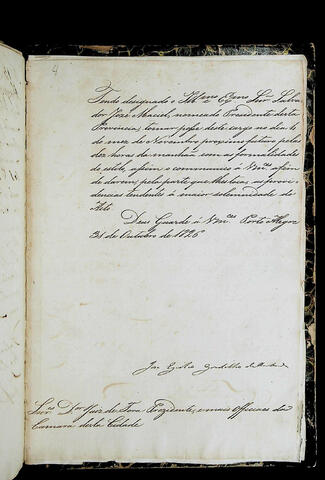 4
Tendo designado o Illmo e Exmo Snr Salva
dor José Maciel, nomeado Presidente desta
Provincia, tomar posse deste cargo no dia
do mez de Novembro proximo futuro pelas
dez horas da manhãa com as formalidades
do estilo, assim o communico á Vmces afim
de darem, pela parte que lhes toca, as provi-
dencias tendentes á maior solemnidade do
Acto
Deus Guarde á Vmces Porto Alegre
31 de Outubro de 1826
José Egidio Gordilho de
Snres Dor Juiz de Fora Prezidente, e mais Officiaes da
Camara desta Cidade